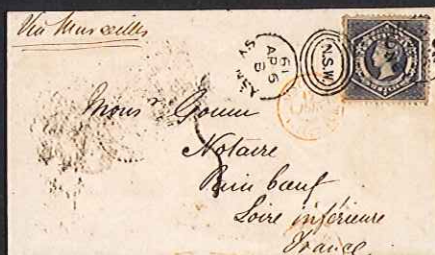 Via Marseilles
SYDNEY
AP 5
61
N.S.W.
Mons Gouin
Notaire
Paimboeuf
Loire inférieure
France